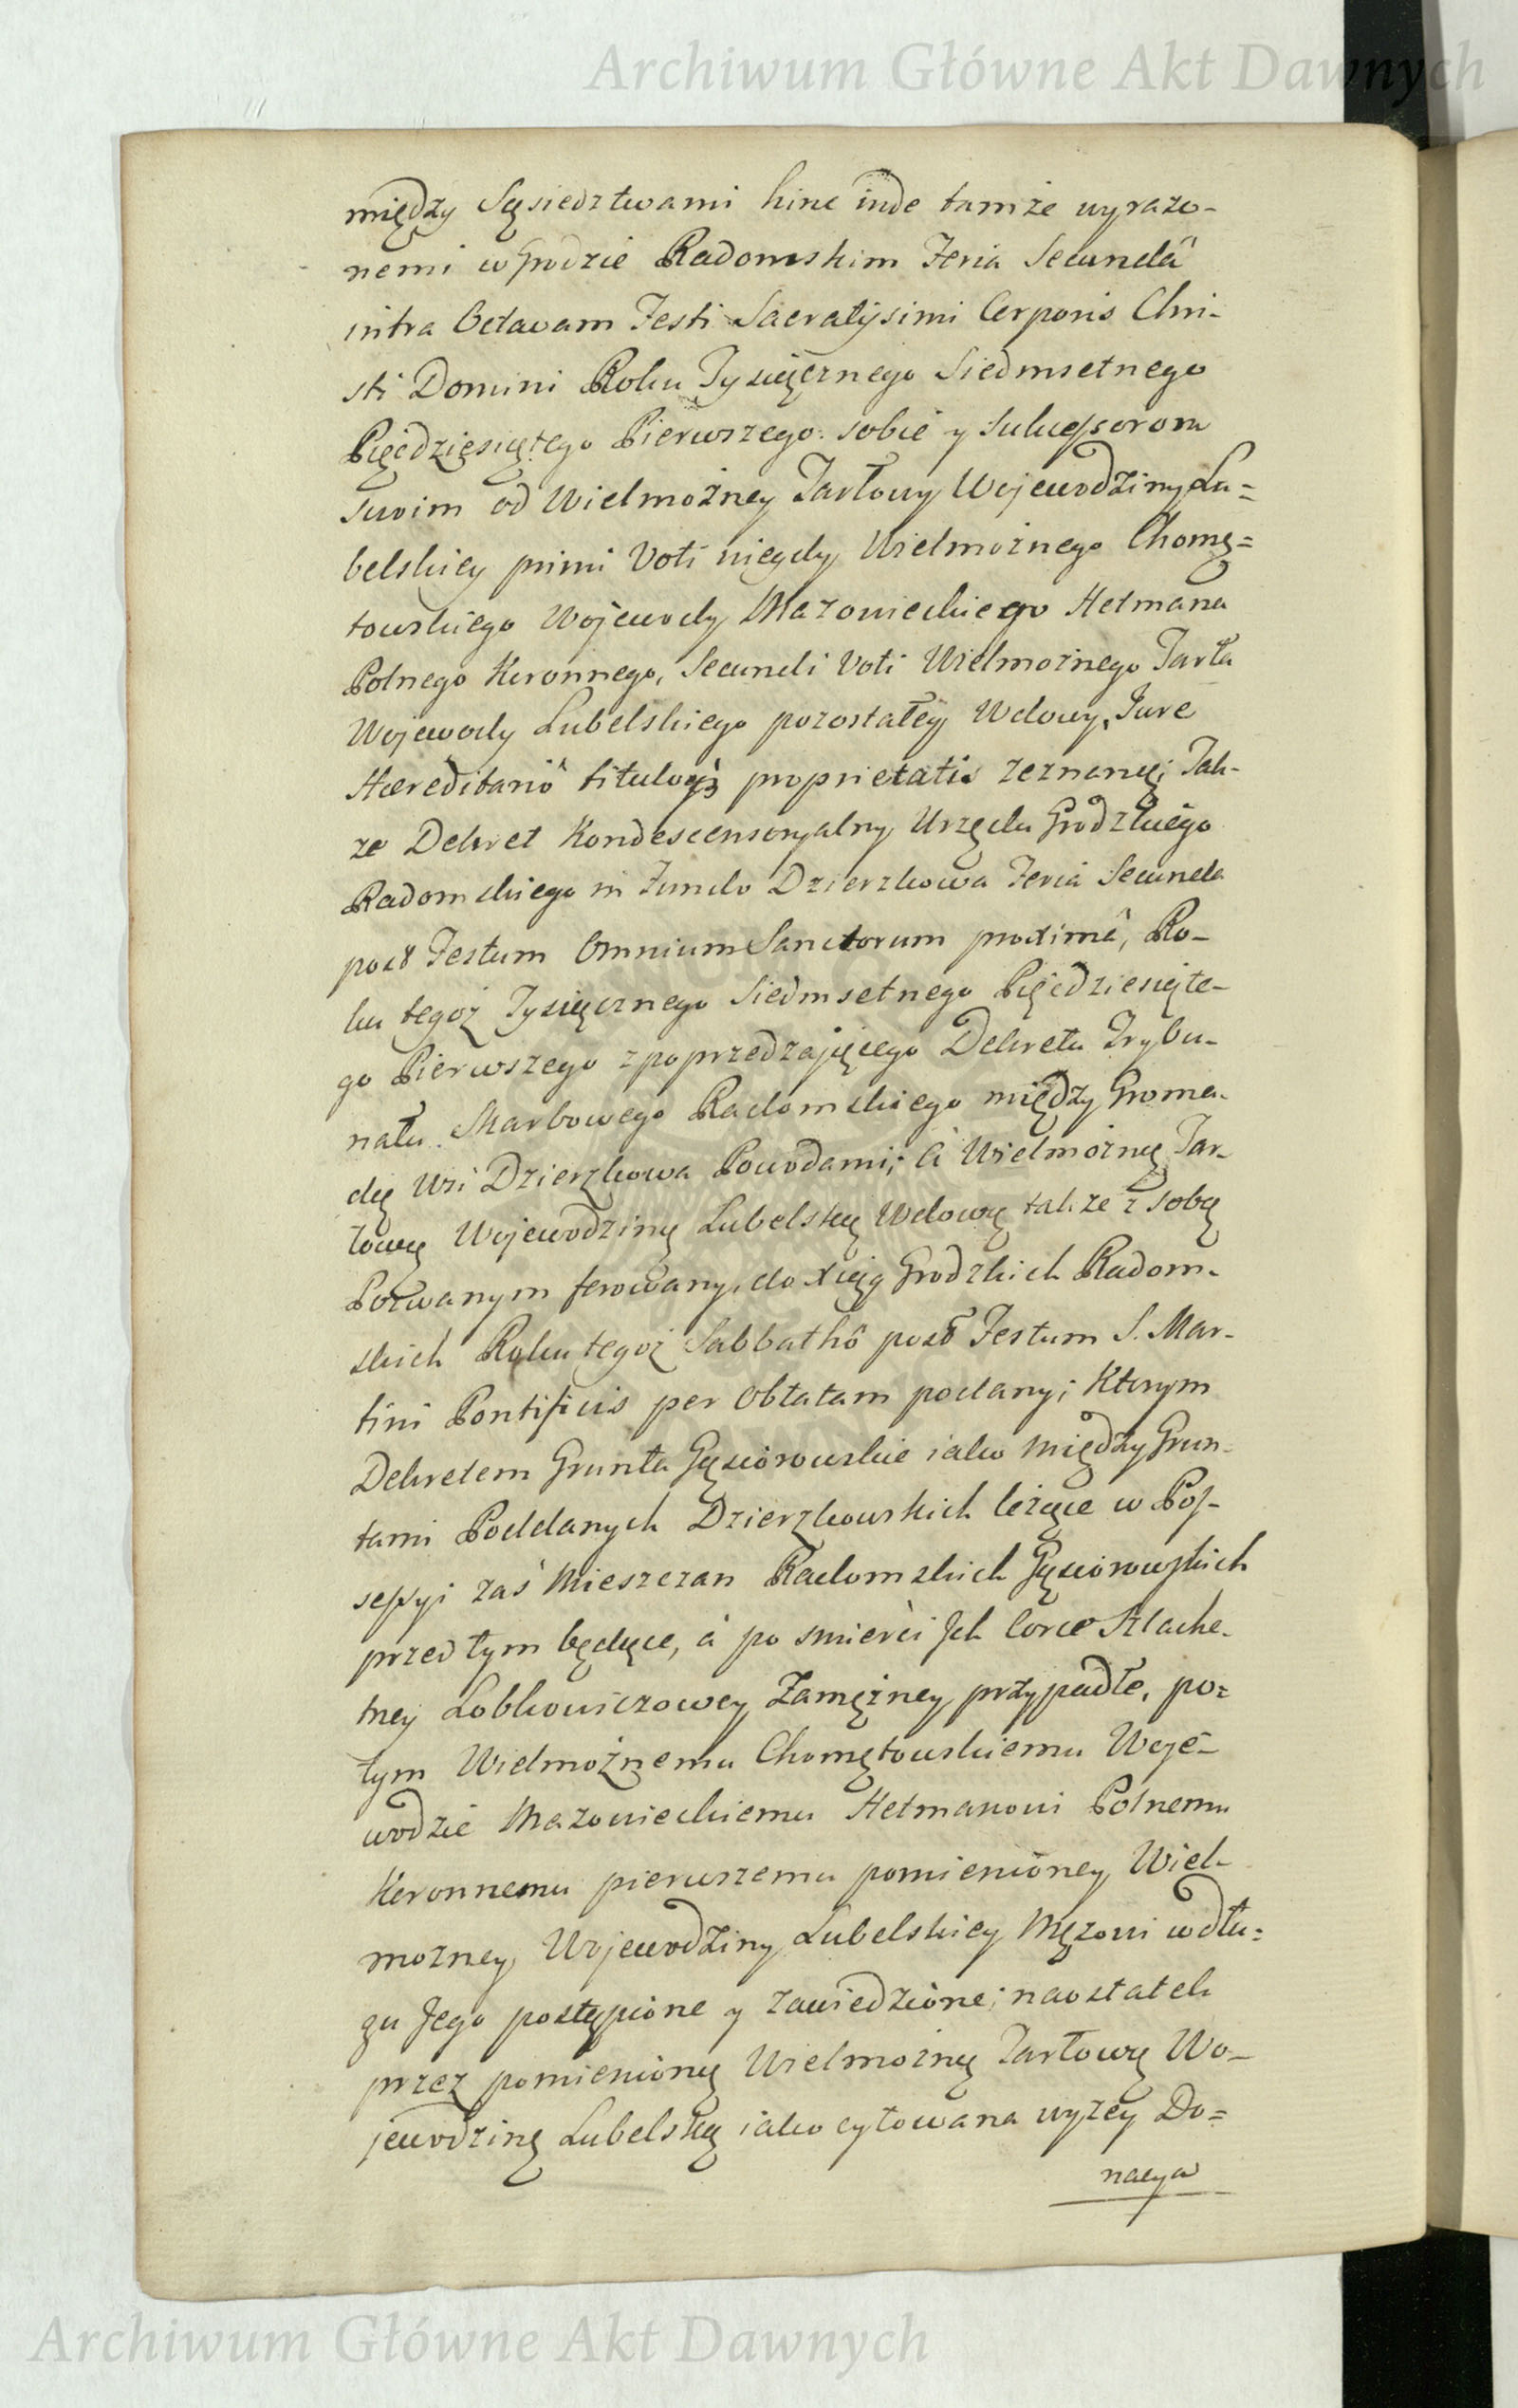 Archiwum Główne Akt Dawnych
między Sąsiedztwami hinc inde tamże wyrażo-
nemi w Grodzie Radomskim Feria Secundâ
intra Octavam Festi Sacratissimi Corporis Chri-
sti Domini Roku Tysiącznego Siedmsetnego
Pięćdziesiątego Pierwszego. sobie y Sukcessorom
swoim od Wielmożney Tarłowy Wojewodziny Lu=
belskiey primi Voti niegdy Wielmożnego Chomę=
towskiego Wojewody Mazowieckiego Hetmana
Polnego Koronnego, Secundi Voti Wielmożnego Tarła
Wojewody Lubelskiego pozostałey Wdowy, Jure
Hæreditariô tituloq3 proprietatis zeznaną; Tak-
ze Dekret Kondescensoryalny Urzędu Grodzkiego
Radomskiego in Fundo Dzierzkowa Feria Secunda
post Festum Omnium Sanctorum proximâ, Ro-
ku tegoż Tysiącznego Siedmsetnego Pięćdziesiąte-
go Pierwszego z poprzedzającego Dekretu Trybu-
nału Skarbowego Radomskiego między Groma-
dą Wsi Dzierzkowa Powodami; à Wielmożną Tar-
łową Wojewodziną Lubelską Wdową także z sobą
Pozwanym ferowany, do Xiąg Grodzkich Radom-
skich Roku tegoż Sabbathô post Festum S. Mar-
tini Pontificis per Oblatam podany; Którym
Dekretem Grunta Gąsiorowskie iako między Grun-
tami Poddanych Dzierzkowskich leżące w Pos-
sessyi zaś Mieszczan Radomskich Gąsiorowskich
przed tym będące, à po smierci Jch Corce Szlache-
tney Lobkowiczowey Zamężney przypadłe, po=
tym Wielmożnemu Chomętowskiemu Woje-
wodzie Mazowieckiemu Hetmanowi Polnemu
Koronnemu pierwszemu pomienioney Wiel-
mozney Wojewodziny Lubelskiey Mężowi w dłu=
gu Jego postąpione y zawiedzione; naostatek
przez pomienioną Wielmożną Tarłową Wo-
jewodzinę Lubelską iako cytowana wyzey Do=
nacya
Archiwum Główne Akt Dawnych